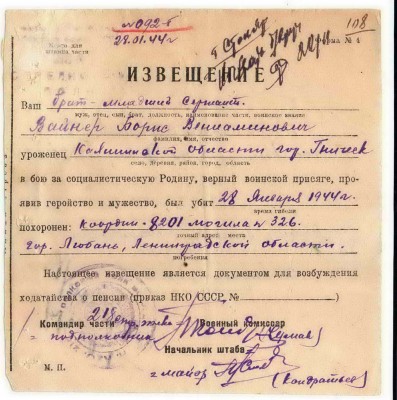 № 092-б
28.01.44 г
108
Форма № 4
ИЗВЕЩЕНИЕ
Ваш брат - младший Сержант
муж, отец, сын, брат, должность, наименование части, воинское звание
Вайнер Борис Вениаминович
фамилия, имя, отчество
уроженец Калининской области гор.
село, деревня, район, город, область
в бою за социалистическую Родину, верный воинской присяге, про-
явив геройство и мужество, был убит 28 Января 1944 г.
время гибели
похоронен: Коорди- 8201 могила № 326.
точный адрес места
гор. Любань, Ленинградской области.
погребения
Настоящее извещение является документом для возбуждения
ходатайства о пенсии (приказ НКО СССР, №
Командир части Военный комиссар
подполковник
Начальник штаба
г. майор (Кондратьев)
М. П.